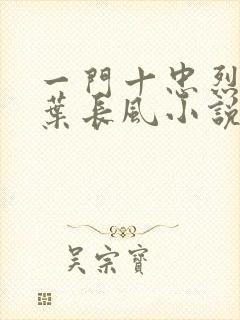 一門十忠烈
葉長風小説
吳宗寶